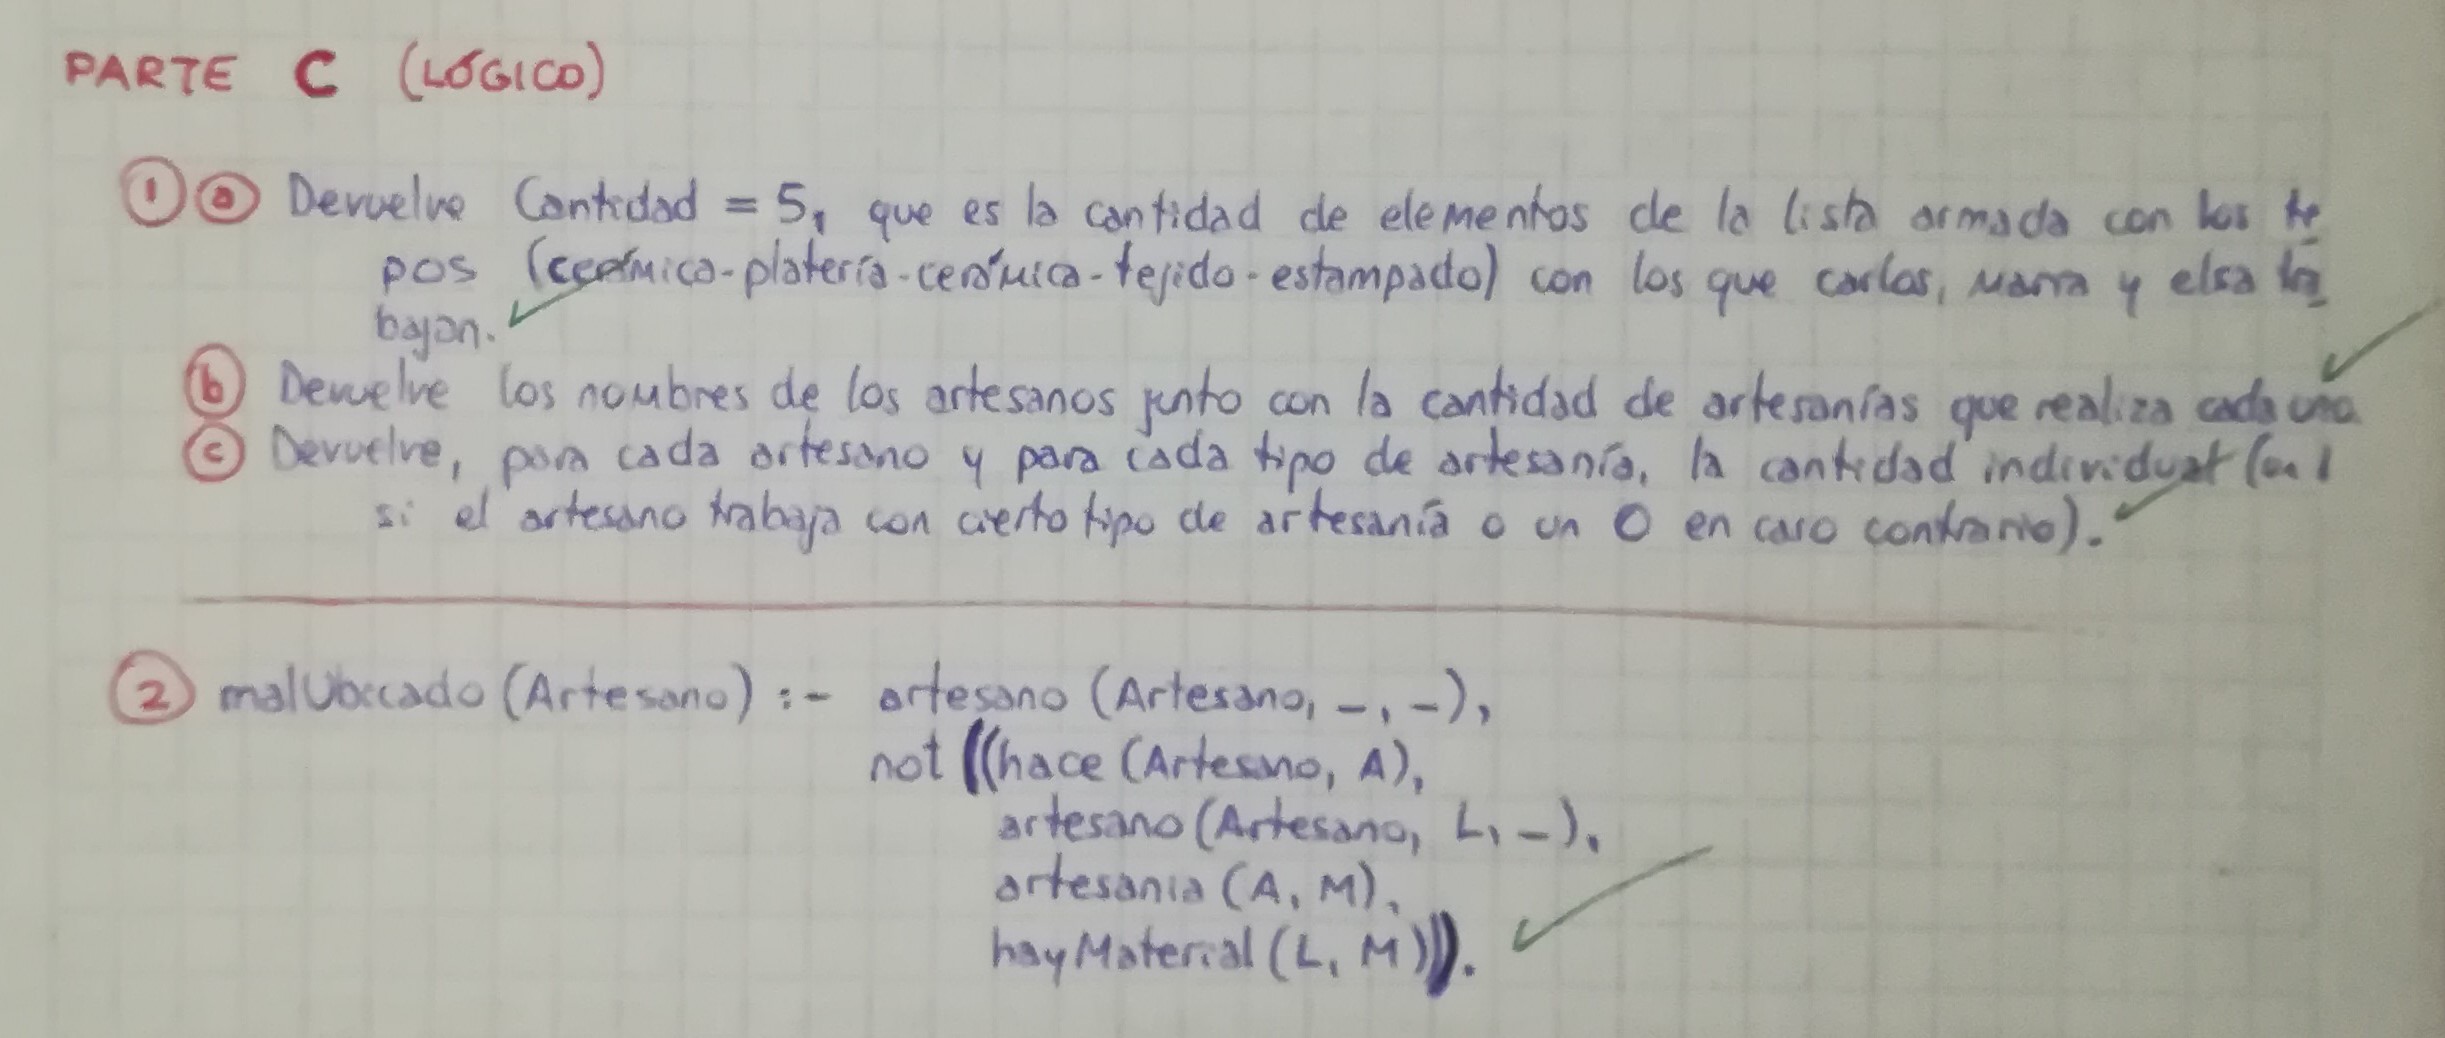 PARTE C (LÓGICO)
1 a Devuelve Cantidad = 5, que es la cantidad de elementos de la lista armada con los ti
pos (cerámica-platería-cerámica-tejido-estampado) con los que carlos, maria y elsa tra
bajan.
b Devuelve los nombres de los artesanos junto con la cantidad de artesanías que realiza cada uno.
c Devuelve, para cada artesano y para cada tipo de artesanía, la cantidad individual (un 1
si el artesano trabaja con cierto tipo de artesanía o un 0 en caso contrario).
2 malUbicado (Artesano) :- artesano (Artesano, _, _),
not ((hace (Artesano, A),
artesano (Artesano, L, _),
artesania (A, M),
hayMaterial (L, M))).